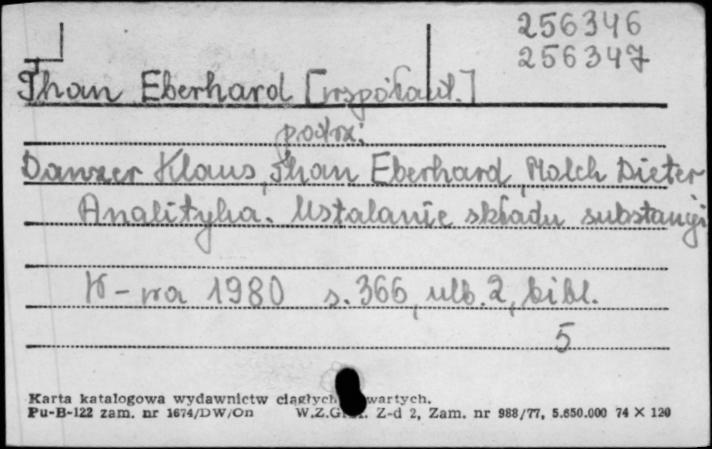 256346
256347
Than Eberhard [współaut.]
patrz:
Danzer Klaus, Than Eberhard, Molch Dieter
Analityka. Ustalanie składu substancji
W-wa 1980 s. 366, nlb. 2, bibl.
5
Karta katalogowa wydawnictw ciągłych wartych.
Pu-B-122 zam. nr 1674/DW/On W.Z.G. Z-d 2, Zam. nr 988/77, 5.650.000 74 × 120